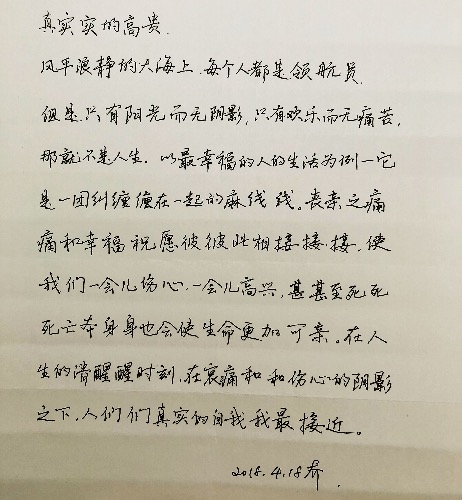 真实实的高贵.
风平浪静的大海上.每个人都是领航员.
但是.只有阳光而无阴影,只有欢乐而无痛苦,
那就不是人生.以最幸福的人的生活为例—它
是一团纠缠缠在一起的麻线线。丧亲之痛
痛和幸福祝愿彼彼此相接接接,使
我们一会儿伤心.一会儿高兴,甚甚至死死
死亡本身身也会使生命更加可亲。在人
生的清醒醒时刻,在哀痛和和伤心的阴影
之下,人们们真实的自我我最接近。
2018.4.18